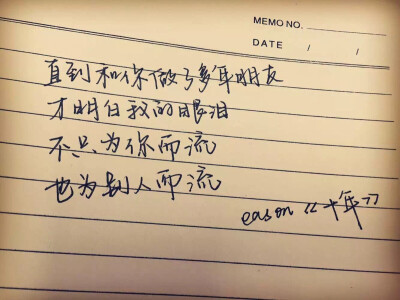 MEMO NO.
DATE / /
直到和你做了多年朋友
才明白我的眼泪
不只为你而流
也为别人而流
eason《十年》